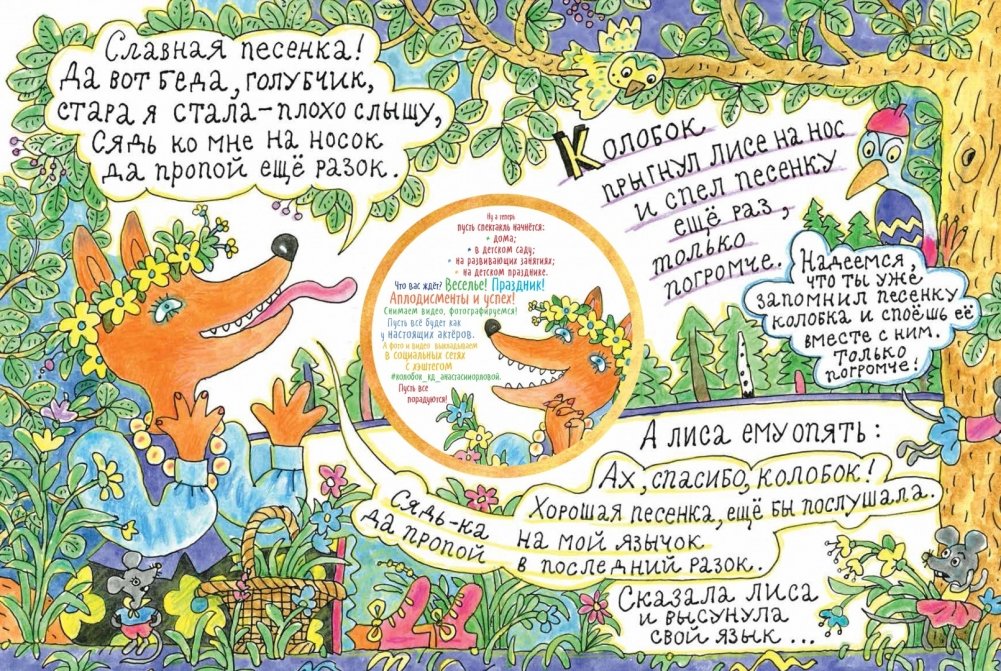 Славная песенка!
Да вот беда, голубчик,
стара я стала – плохо слышу,
сядь ко мне на носок
да пропой ещё разок.
Колобок
прыгнул лисе на нос
и спел песенку
ещё раз,
только
погромче.
Надеемся,
что ты уже
запомнил песенку
колобка и споёшь её
вместе с ним.
Только
погромче!
Ну а теперь
пусть спектакль начнётся:
* дома;
* в детском саду;
* на развивающих занятиях;
* на детском празднике.
Что вас ждёт? Веселье! Праздник!
Аплодисменты и успех!
Снимаем видео, фотографируемся!
Пусть всё будет как
у настоящих актёров.
А фото и видео выкладываем
в социальных сетях
с хэштегом
#колобок_кд_анастасииорловой.
Пусть все
порадуются!
А лиса ему опять:
Ах, спасибо, колобок!
Хорошая песенка, ещё бы послушала.
Сядь-ка на мой язычок
да пропой в последний разок.
Сказала лиса
и высунула
свой язык ...